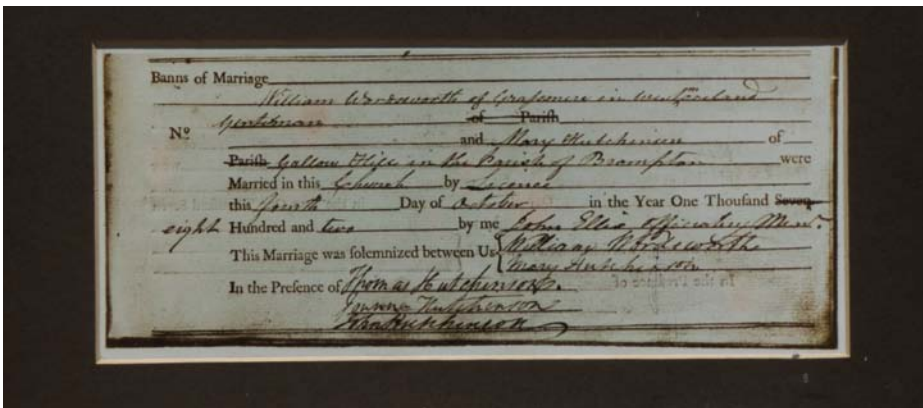 Banns of Marriage
William Wordsworth of Grasmere in Westmoreland
Gentleman of Parish
Nº
and Mary Hutchinson of
Parish Gallow Hill in the Parish of Brompton were
Married in this Church by Licence
this fourth Day of October in the Year One Thousand Seven
eight Hundred and two by me John Ellis officiating Minr.
This Marriage was solemnized between Us William Wordsworth
Mary Hutchinson
In the Presence of Thomas Hutchinson.
Joanna Hutchinson
John Hutchinson